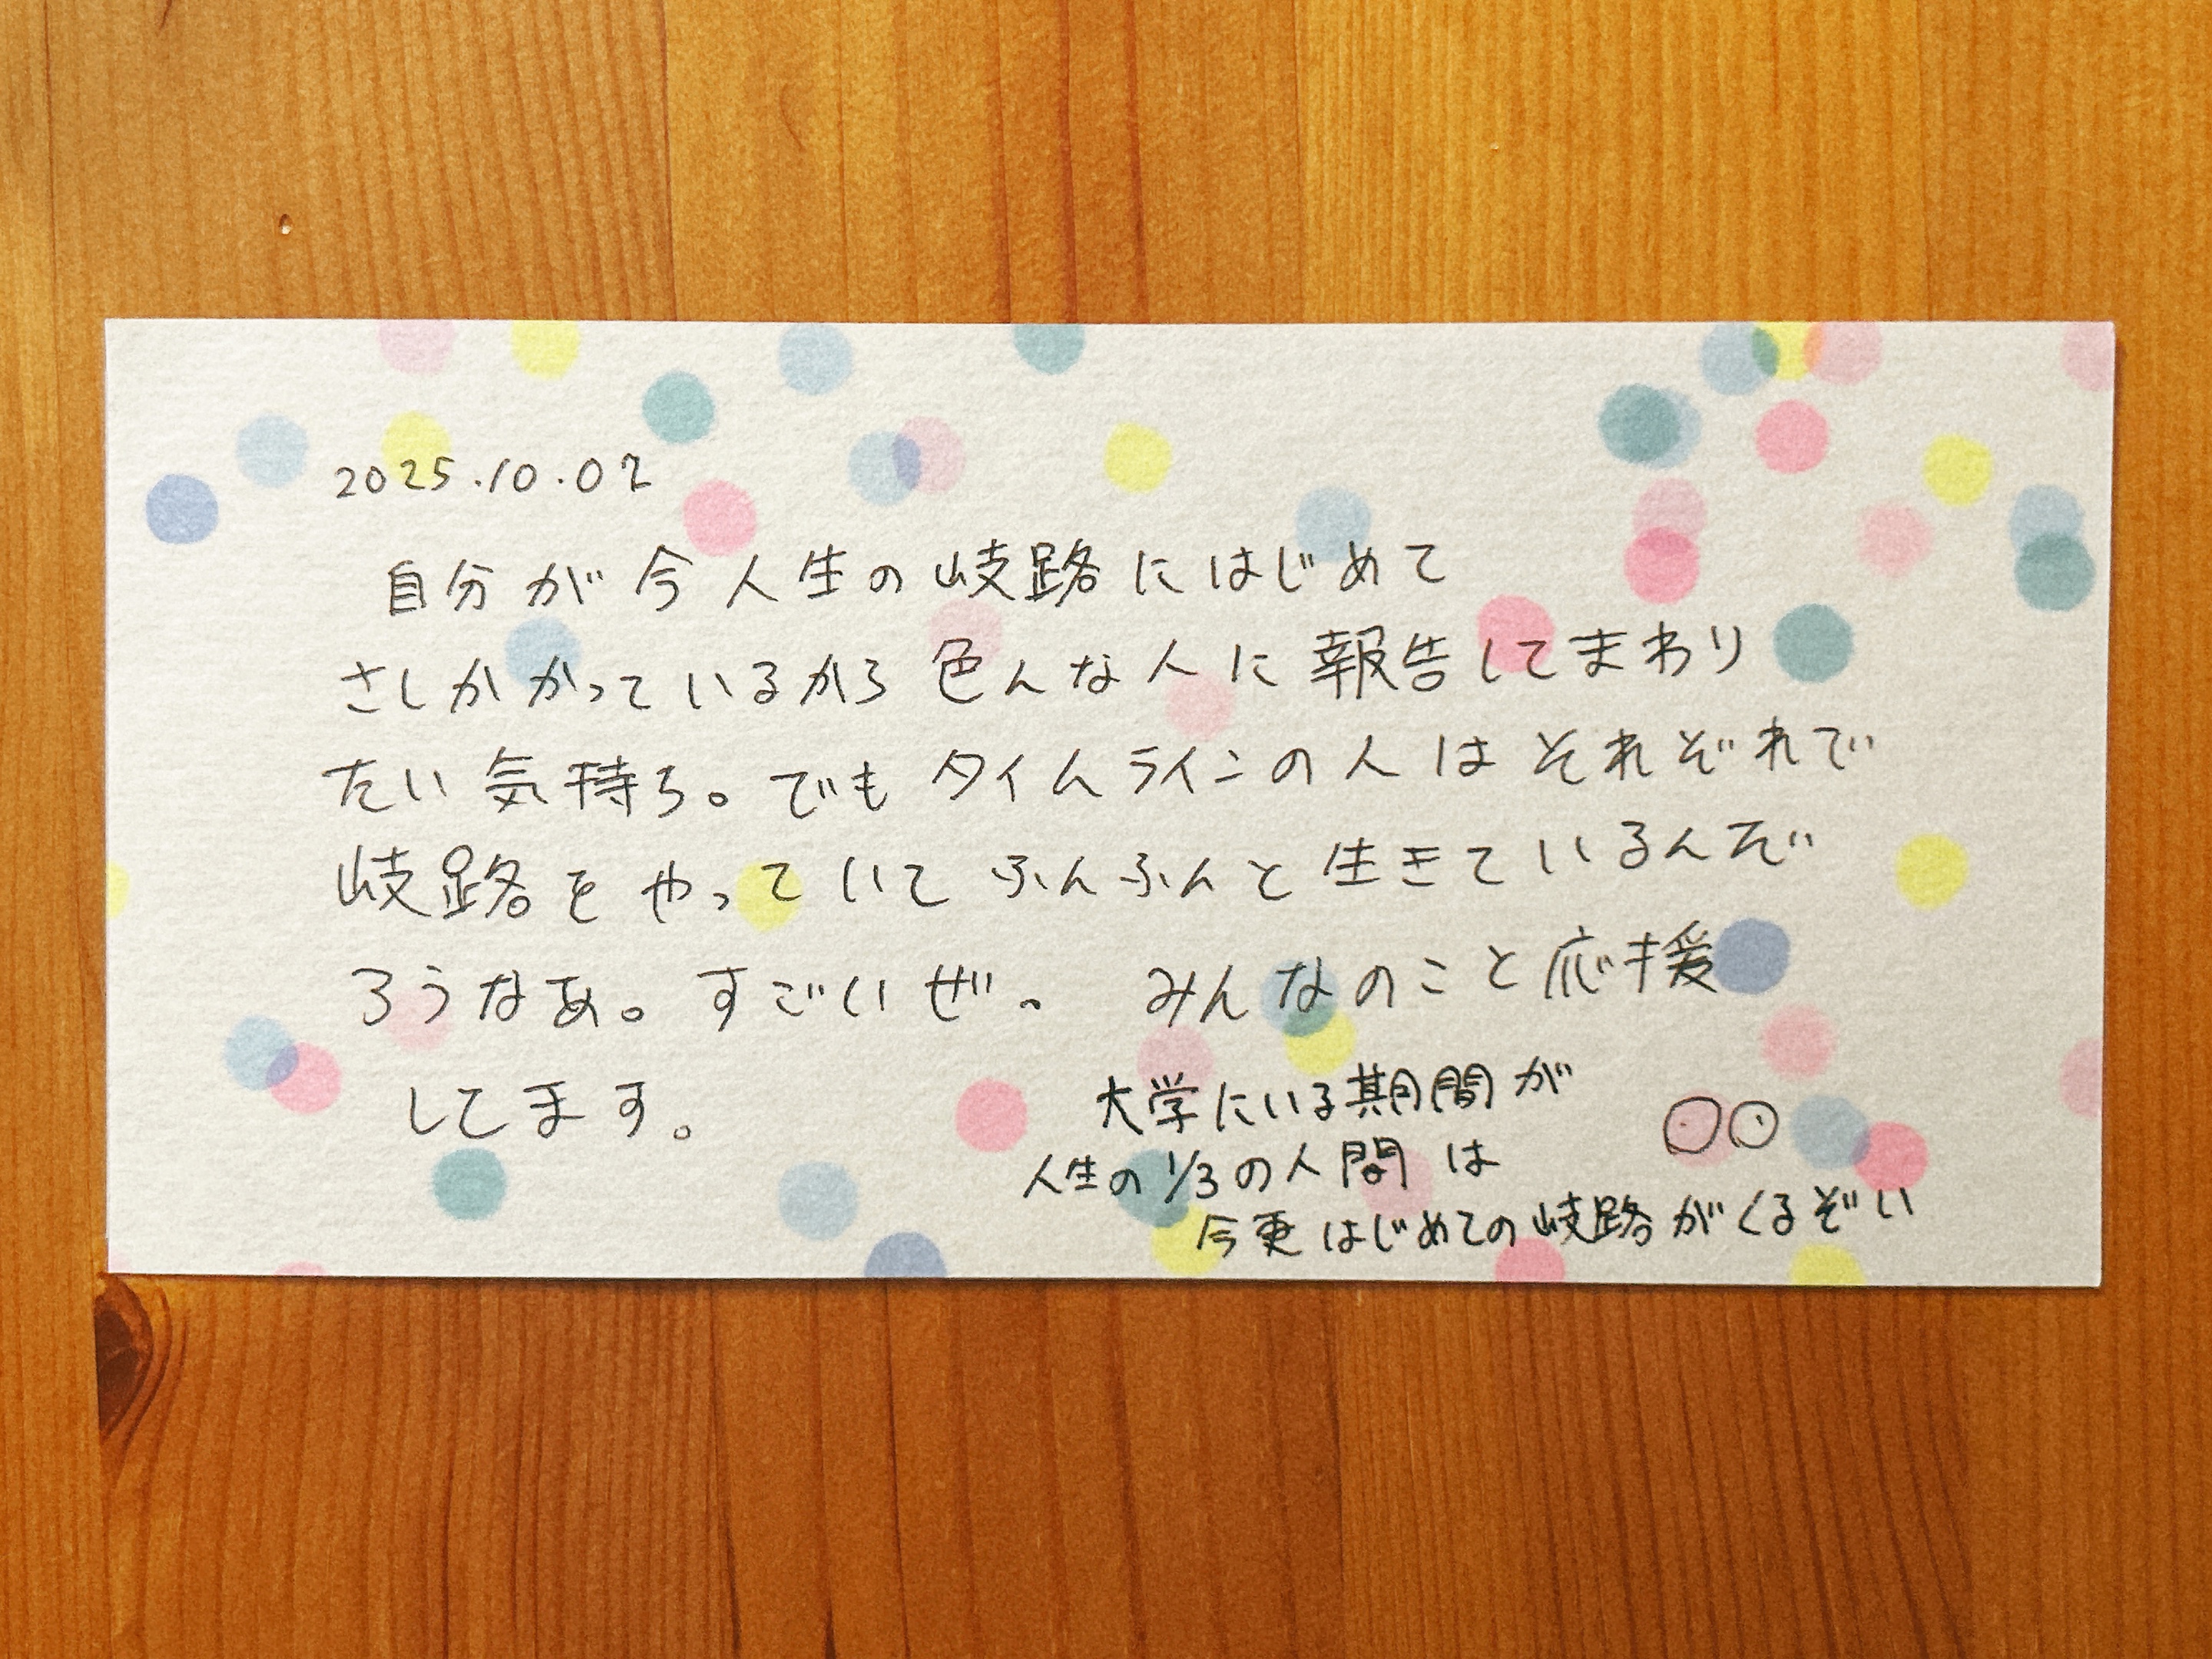 2025.10.02
自分が今人生の岐路にはじめて
さしかかっているから色んな人に報告してまわり
たい気持ち。でもタイムラインの人はそれぞれで
岐路をやっていてふんふんと生きているんだ
ろうなあ。すごいぜ。 みんなのこと応援
してます。
大学にいる期間が
人生の1/3の人間は
今更はじめての岐路がくるぞい